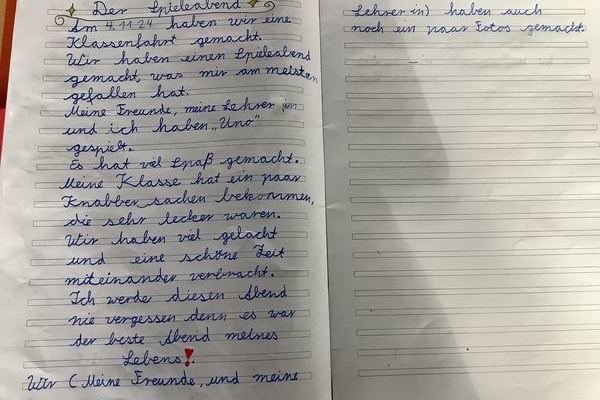 Der Spieleabend
Am 4.11.24 haben wir eine
Klassenfahrt gemacht.
Wir haben einen Spieleabend
gemacht, was mir am meisten
gefallen hat.
Meine Freunde, meine Lehrer in
und ich haben „Uno"
gespielt.
Es hat viel Spaß gemacht.
Meine Klasse hat ein paar
Knabber sachen bekommen,
die sehr lecker waren.
Wir haben viel gelacht
und eine schöne Zeit
miteinander verbracht.
Ich werde diesen Abend
nie vergessen denn es war
der beste Abend meines
Lebens!
Wir (Meine Freunde, und meine
Lehrer in) haben auch
noch ein paar Fotos gemacht.